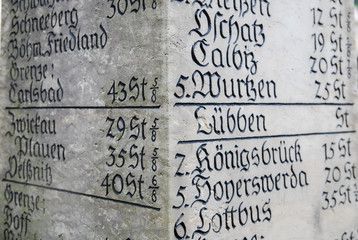 Schneeberg 30St
Böhm. Friedland
Grenze:
Carlsbad 43St 5/8
Zwickau 29St 5/8
Plauen 35St 5/8
Oelßnitz 40St 5/8
Grenze:
Hoff
Meißen 12 St
Oschatz 19 St
Calbiz 20 St
5. Wurtzen 25St
Lübben St
2. Königsbrück 15St
5. Hoyerswerda 20St
6. Cottbus